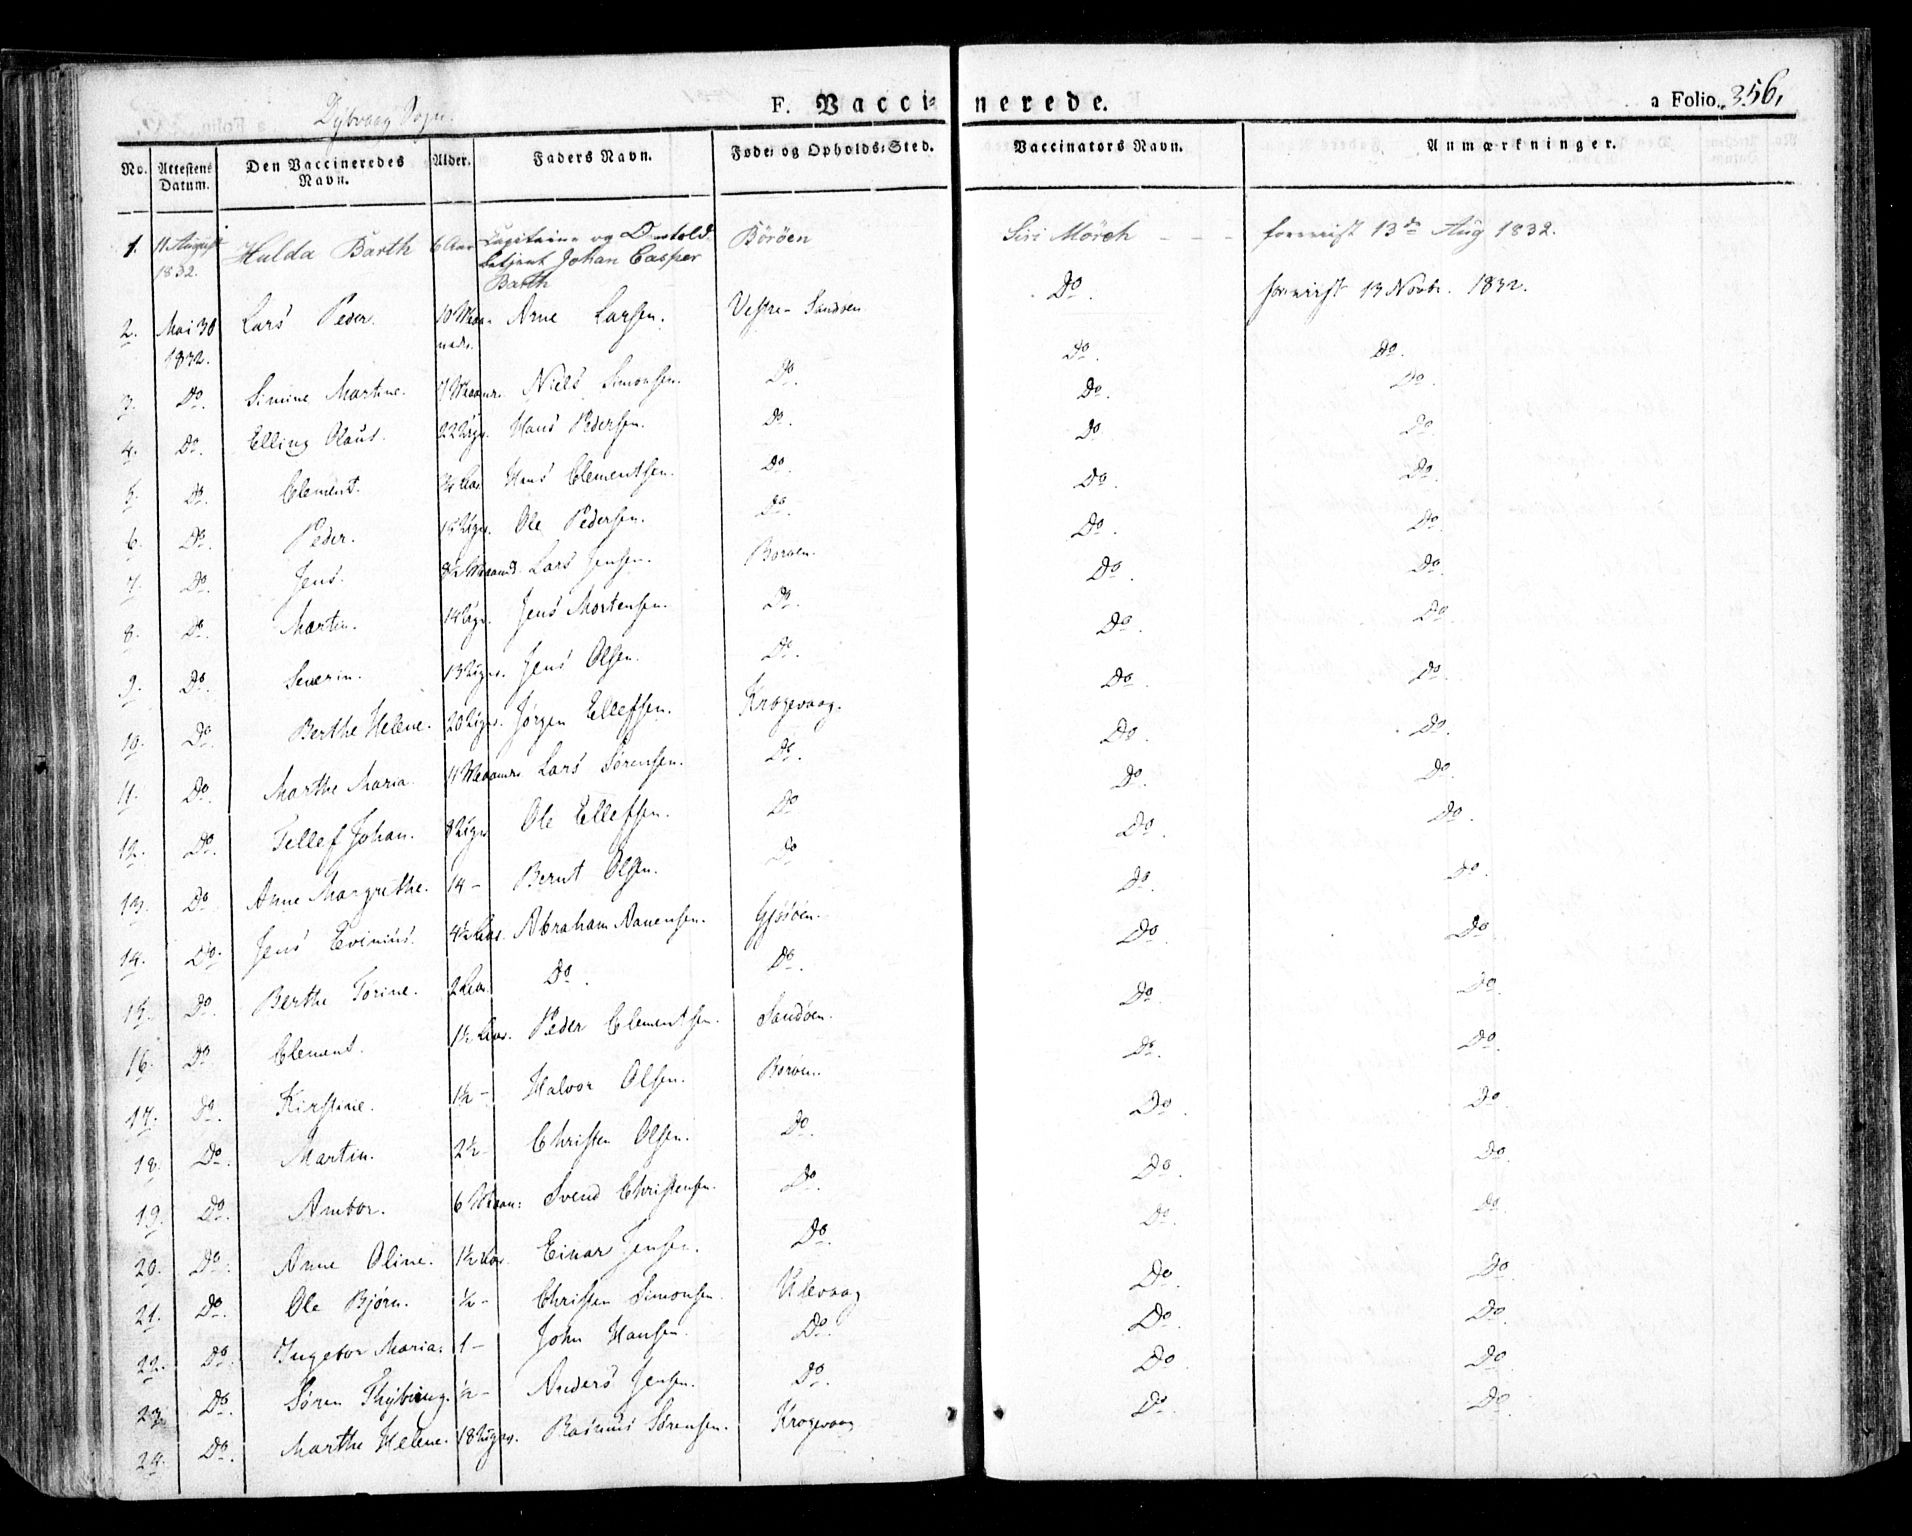 Dybvaag Sogn.
F. Vaccinerede.
a Folio. 356,
No. Attestens Datum. Den Vaccineredes Navn. Alder. Faders Navn. Føde- og Opholds-Sted. Vaccinators Navn. Anmærkninger.
1. 11 August 1832. Hulda Barth 6 Aar Capitaine og Betjent Johan Casper Barth Böröen Siri Mörch - - - foreviist 13de Aug 1832.
2. Mai 30 1832. Lars Peder. 10 Maaneder. Arne Larsen. Vestre Sandøen Do. foreviist 13 Novbr. 1832.
3. Do. Simine Martine. 7 Maaner. Niels Simonsen. Do. Do. Do.
4. Do. Elling Olaus. 22 Uger. Hans Pedersen. Do. Do. Do.
5. Do. Clement. Aar Hans Clementsen. Do. Do Do
6. Do. Peder. Uger. Ole Pedersen. Do. Do. Do.
7. Do Jens. 8½ Maand. Lars Jensen. Borøen. Do. Do
8. Do. Martin. 14 Uger. Jens Mortensen. Do. Do. Do.
9. Do. Severin. 13 Uger. Jens Olsen. Do. Do. Do
10. Do. Berthe Helene. 20 Uger. Jørgen Ellefsen. Krogevaag. Do. Do.
11. Do. Marthe Maria. 11 Maaner. Lars Sørensen. Do. Do. Do.
12. Do. Tellef Johan. Uger Ole Ellefsen. Do Do. Do.
13. Do. Anne Margrethe. 14 - Bernt Olsen. Do Do. Do.
14. Do. Jens Evinius. 4½ Aar. Abraham Aanensen. Gjøsøen. Do. Do.
15. Do. Berthe Torine. 2 Aar. Do. Do. Do. Do.
16. Do. Clement. 1½ Aar. Peder Clementsen. Sandøen. Do. Do.
17. Do. Kirstine. 1½ - Halvor Olsen. Borøen. Do. Do.
18. Do. Martin. 2½ - Christen Olsen. Do. Do. Do.
19. Do. Ambor. 6 Maan: Svend Christensen. Do. Do. Do.
20. Do. Anne Oline. 1½ Aar. Einar Jensen. Do. Do. Do.
21. Do. Ole Bjørn. ½ - Christen Simonsen. Udevaag Do. Do.
22. Do. Ingebor Maria. 1 - John Hansen. Do. Do. Do.
23. Do. Søren Thybring. ½ - Anders Jensen. Do. Do. Do.
24. Do. Marthe Helene. 18 Uger. Rasmus Sørensen. Krogevaag Do. Do.